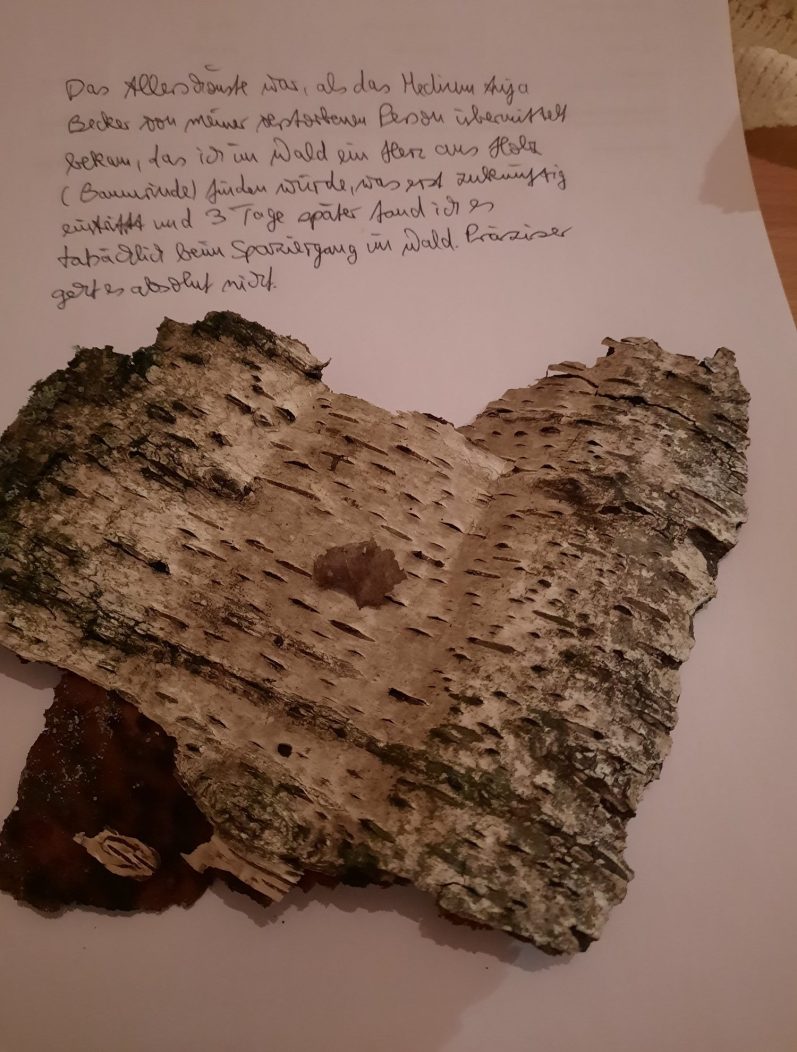 Das Allerschönste war, als das Medium Anja
Becker von meiner verstorbenen Person übermittelt
bekam, das ich im Wald ein Herz aus Holz
(Baumrinde) finden würde, was erst zukünftig
eintrifft und 3 Tage später fand ich es
tatsächlich beim Spaziergang im Wald. Präziser
geht es absolut nicht.